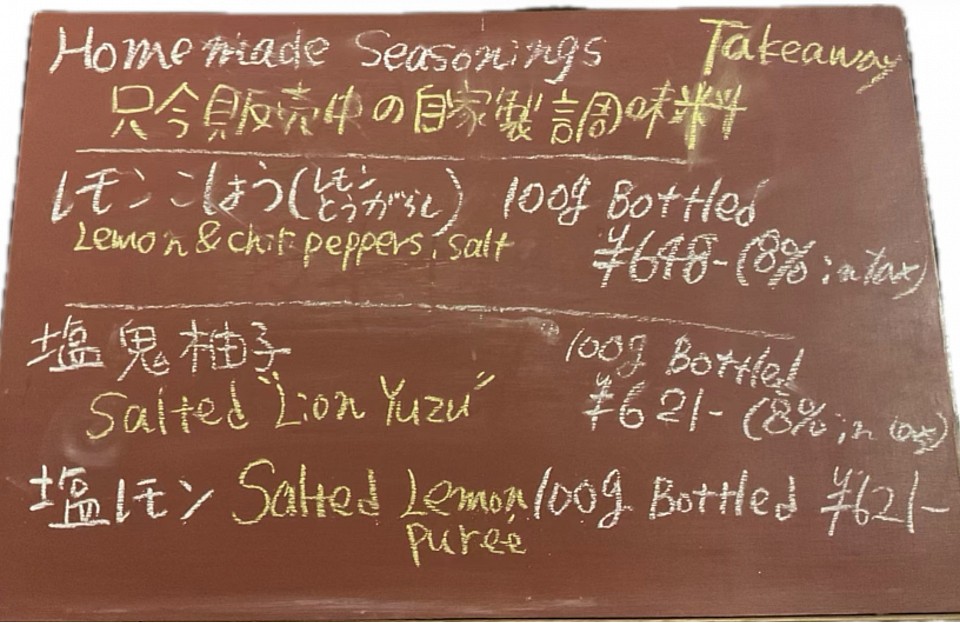 Homemade Seasonings Takeaway
只今販売中の自家製調味料
レモンこしょう(レモンとうがらし) 100g Bottled
Lemon & chili peppers, salt ¥648- (8% in tax)
塩鬼柚子 100g Bottled
Salted "Lion Yuzu" ¥621- (8% in tax)
塩レモン Salted Lemon 100g Bottled ¥621-
pureé